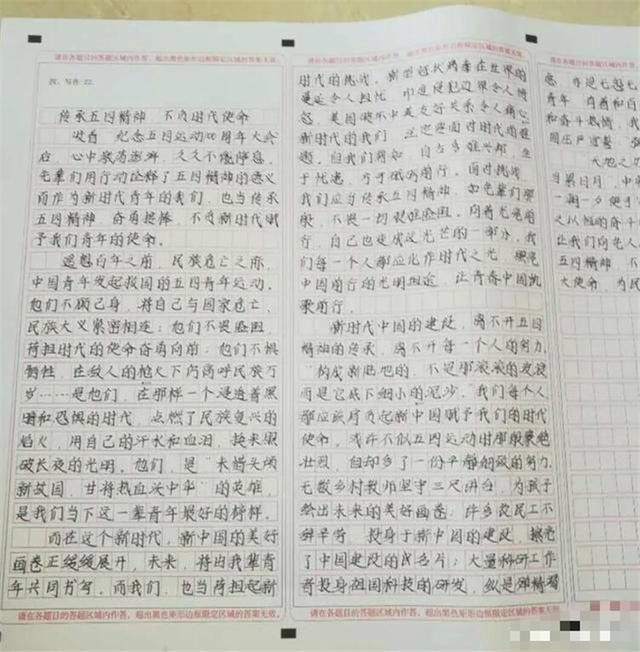 请在各题目的答题区域内作答，超出黑色矩形边框限定区域的答案无效
四、写作:22.
传承五四精神 不负时代使命
收看 纪念五四运动100周年大会
后，心中激荡澎湃，久久不能停息，
先辈们用行动诠释了五四精神的意义
而作为新时代青年的我们，也当传承
五四精神，奋勇接棒，不负新时代赋
予我们青年的使命。
遥想百年之前，民族危亡之际，
中国青年发起救国的五四青年运动。
他们不顾己身，将自己与国家危亡、
民族大义紧密相连；他们不畏险阻，
荷担时代的使命奋勇向前；他们不惧
牺牲，在敌人的枪火下内高呼民族万
岁……是他们，在那样一个浸透着黑
暗和恐惧的时代，点燃了民族复兴的
焰火，用自己的汗水和血泪，换来银
破长夜的光明。他们，是“未惜头颅
新故国，甘将热血沃中华”的英雄，
是我们当下这一辈青年最好的榜样。
而在这个新时代，新中国的美好
画卷正缓缓展开，未来，将由我辈青
年共同书写。而我们，也当荷担起新
请在各题目的答题区域内作答，超出黑色矩形边框限定区域的答案无效。
请在各题目的答题区域内作答，超出黑色矩形边框限定区域的答案无效
时代的挑战。新型冠状病毒在世界的
蔓延令人担忧，印度侵犯边界令人愤
怒，美国破坏中美友好关系令人痛心
新时代的我们，正也要面对时代的难
题。但我们得知，自古多难兴邦，生
于忧患，方于砥砺前行。面对挑战，
我们应当传承五四精神，如先辈们那
般，不畏一切艰难险阻，向着光亮前
行，自己也要成这光芒的一部分，我
们每一个人都应化作时代之光，照亮
中国前行的光明坦途，让青春中国凯
歌前行。
新时代中国的建设，离不开五四
精神的传承，离不开每一个人的努力。
“构成新陆地的，不是那滚滚的波浪
而是它底下细小的泥沙。”我们每个人
都应跃肩负起新中国赋予我们的时代
使命，或许不似五四运动时那般艰艳
壮烈，但却多了一份平静细致的努力
无数乡村教师坚守三尺讲台，为孩子
绘出未来的美好画卷；许多农民工不
辞辛苦，投身于新中国的建设，擦亮
了中国建设的民名片；大量科研工作
者投身祖国科技的研发，纵是
请在各题目的答题区域内作答，超出黑色矩形边框限定区域的答案无效。
请在各题目的答
青年
和奋斗热情，我
国庄严宣誓，
当累日月，中
一朝一夕便于
之以恒的奋斗
让我们向先人
五四精神，不
大使命，为民
请在各题目的答